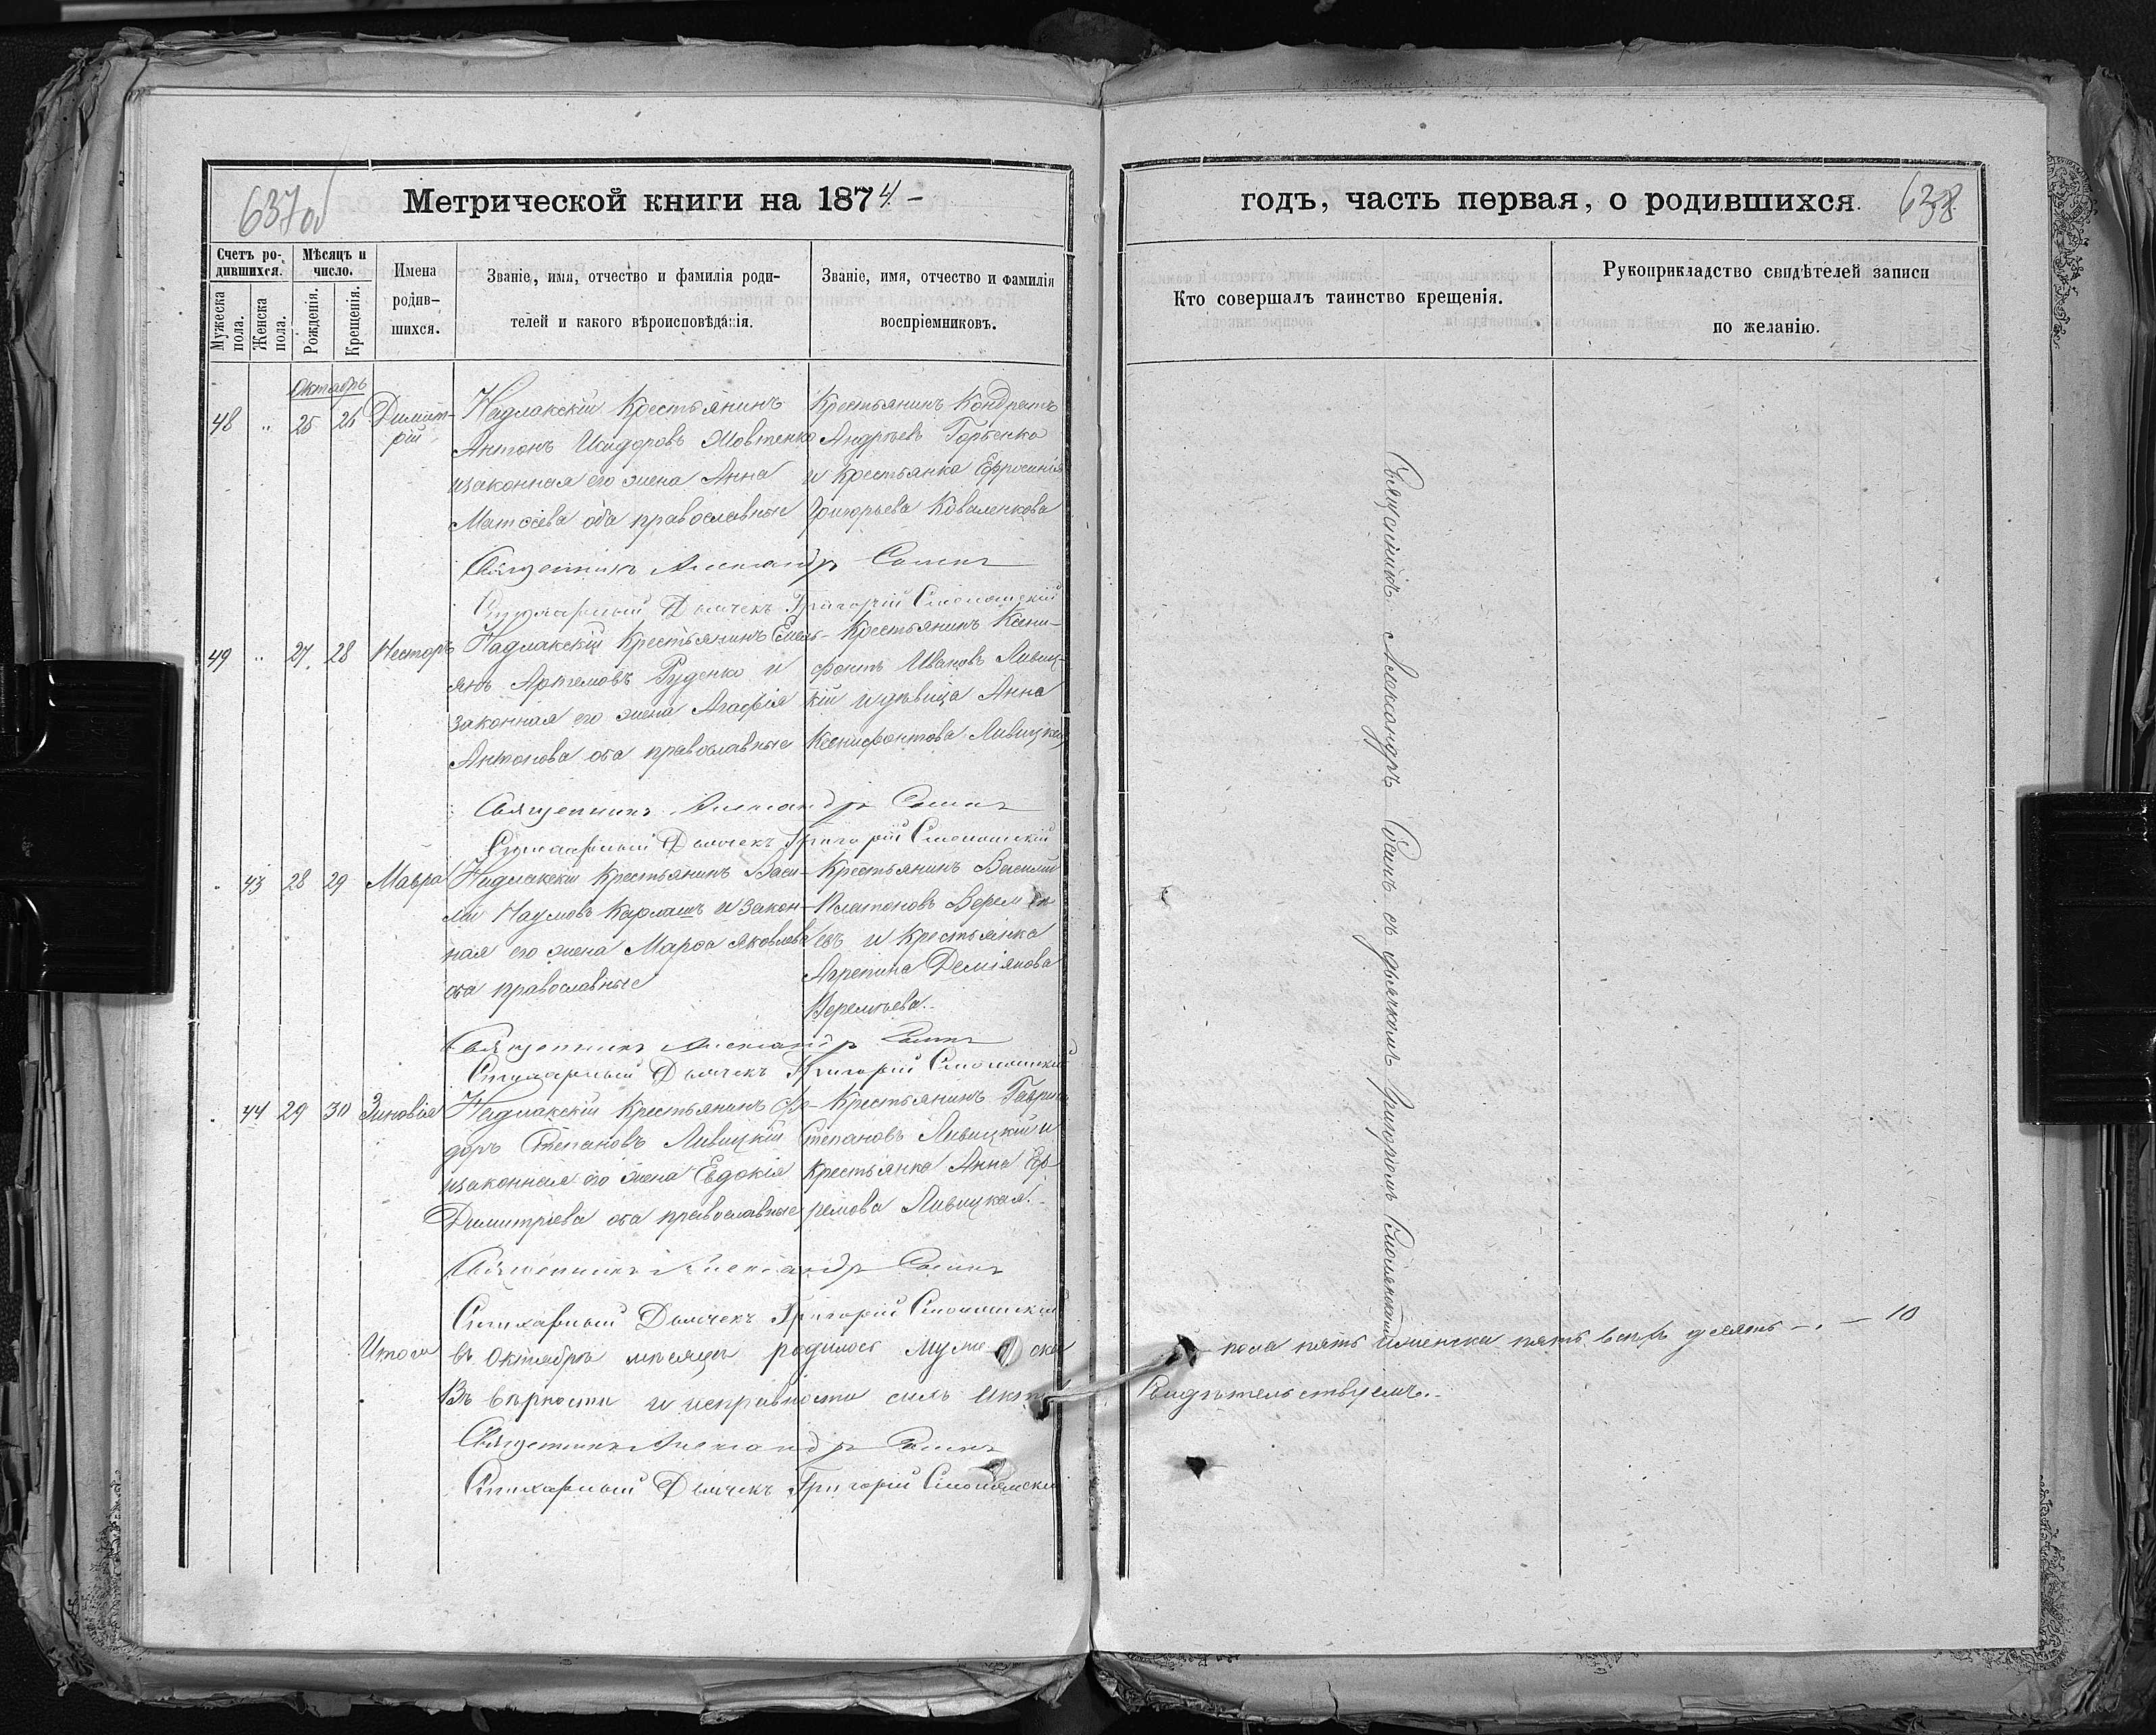 637об
Метрической книги на 1874 -
Счетъ ро-
дившихся.
Мѣсяцъ и
число.
Мужеска
пола.
Женска
пола.
Рожденія.
Крещенія.
Имена
родив-
шихся.
Званіе, имя, отчество и фамилія роди-
телей и какого вѣроисповѣданія.
Званіе, имя, отчество и фамилія
воспріемниковъ.
Октябрь
48 " 25 26 Димит-
рій
Надлакскій Крестьянинъ
Антонъ Исидоровъ Мовтенко
изаконная его жена Анна
Матѳіева оба православные
Крестьянинъ Кондратъ
Андреевъ Горбенко
и Крестьянка Ефросинія
Григорьева Коваленкова
Священникъ Александръ
Стихарный Дьячекъ Григорій Смолянскій
49 " 27 28 Несторъ
Надлакскій Крестьянинъ Емель-
янъ Артемовъ Руденко и
законная его жена Агафія
Антонова оба православные
Крестьянинъ Ксени-
фонтъ Ивановъ Ливиц-
кій и дѣвица Анна
Ксенифонтова Ливицкая
Священникъ Александръ
Стихарный Дьячекъ Григорій Смолянскій
43 28 29 Мавра
Надлакскій Крестьянинъ Васи-
лій Наумовъ Карлашъ и закон-
ная его жена Марѳа Яковлева
оба православные
Крестьянинъ Василій
Платоновъ
евъ и Крестьянка
Агрепина Деміянова
Веремѣева.
Священникъ Александръ
Стихарный Дьячекъ Григорій Смолянскій
44 29 30 Зиновія
Надлакскій Крестьянинъ Фе-
доръ Степановъ Ливицкій
изаконная его жена Евдокія
Димитріева оба православные
Крестьянинъ Гавриилъ
Степановъ Ливицкій и
Крестьянка Анна Еф-
ремова Ливицкая.
Священникъ Александръ
Стихарный Дьячекъ Григорій Смолянскій
Итого въ Октябрѣ мѣсяцѣ родилось Мужеска
Въ вѣрности и исправности сихъ актовъ
Священникъ Александръ
Стихарный Дьячекъ Григорій Смолянскій
годъ, часть первая, о родившихся.
638
Кто совершалъ таинство крещенія.
Рукоприкладство свидѣтелей записи
по желанію.
Священникъ Александръ съ дьячкомъ Григоріемъ Смолянскимъ
пола пять иженска пять всѣхъ десять - . - 10
Свидѣтельствуемъ.